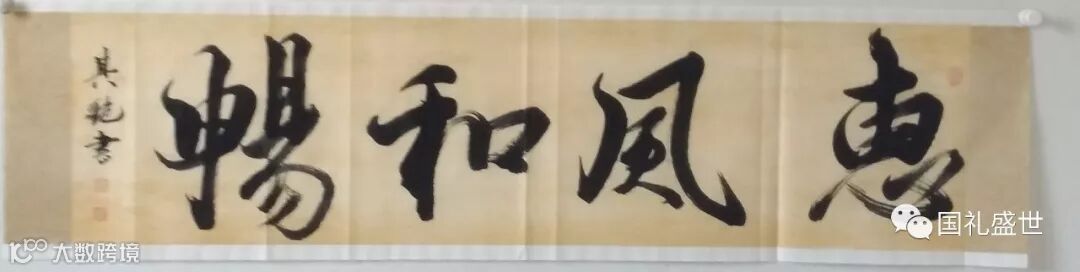 惠風和暢
其乾書
国礼盛世
10100 大数跨境